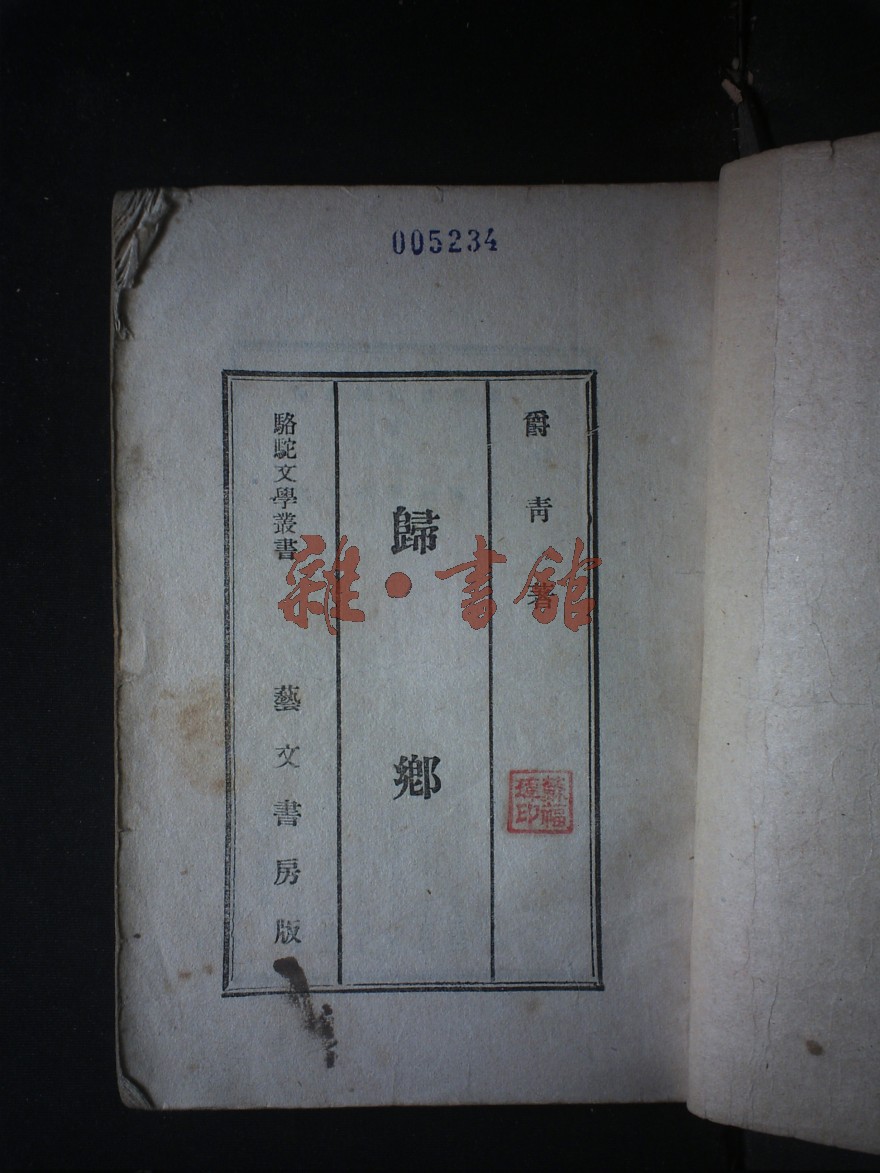 005234
爵青著
歸鄉
駱駝文學叢書
藝文書房版
雜·書館